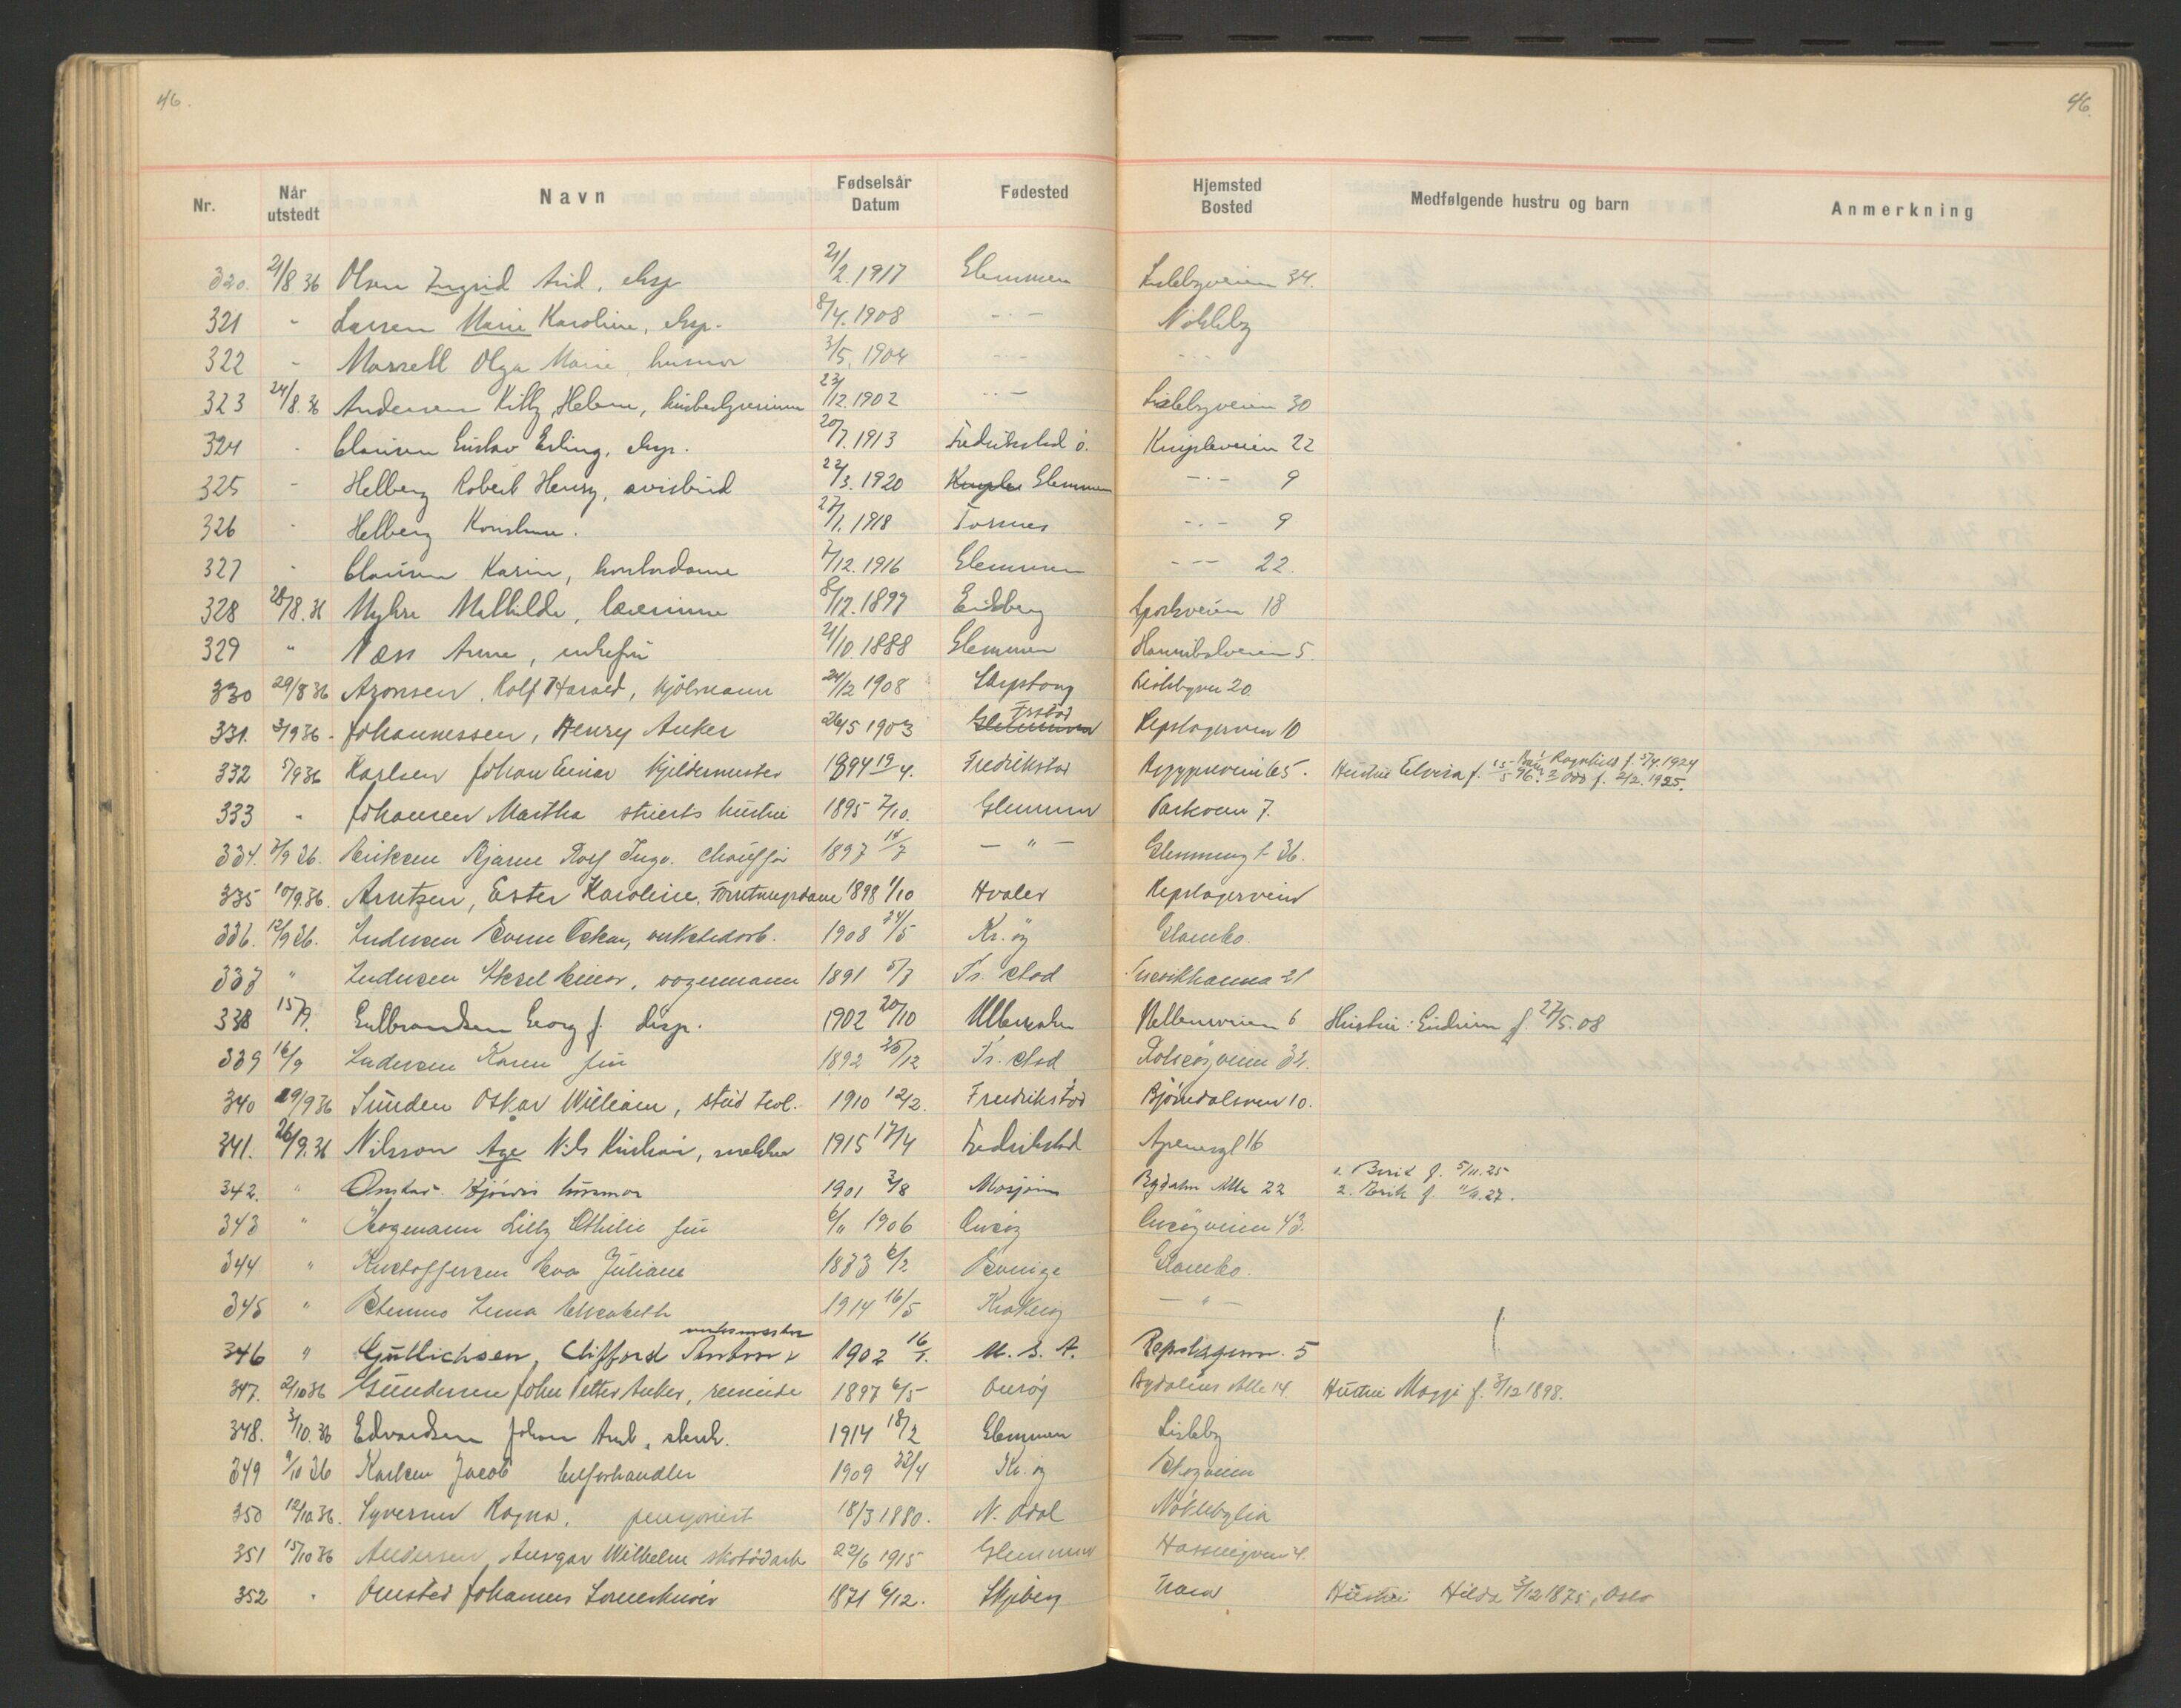 46.
46.
Nr. Når utstedt Navn Fødselsår Datum Fødested Hjemsted Bosted Medfølgende hustru og barn Anmerkning
320. 21/8 36 Olsen Ingrid Arid, eksp. 21/2. 1917 Glemmen Lislebyveien 34.
321 - Larsen Marie Karoline, eksp. 8/4. 1908 - . - Nøkleby
322 - Olga Marie, husmor 3/5. 1904 - - - - -
323 24/8. 36 Andersen Killy Helene, 23/12. 1902 - . - Lislebyveien 30
324 - Clausen Gustav Erling, eksp. 20/7. 1913 Fredrikstad ö. Knipleveien 22
325 - Helberg Robert Henry, avisbud 22/3. 1920 Glemmen - . - 9
326 - Helberg 27/1. 1918 Torsnes - . - 9
327 - Clausen Karin, kontordame 7/12. 1916 Glemmen - - - 22.
328 28/8. 36 Myhre Mathilde, lærerinne 8/12. 1897 Eidsberg 18
329 " Næss Anne, enkefru 21/10. 1888 Glemmen Hannibalveien 5.
330 29/8 36 Aronsen, Rolf Harald, 24/12 1908 Sarpsborg Lislebyvn 20.
331. 3/9 36 - Johannessen, Henry Anker 26/5 1903 Glemmen Frstad Repslagerveien 10
332 5/9 36 Karlsen Johan Einar 1894 19/4. Fredrikstad 65. Hustru Elvira f. 15/5 96. Barn Ragnhild f. 5/4. 1924 2 Odd f. 2/2. 1925.
333 " Johansen Martha hustru 1895 7/10. Glemmen Parkveien 7.
334. 7/9 36. Eriksen Bjarne Rolf Ingv. chauffør 1897 14/7 - " - Glemmeng t. 36.
335 10/9. 36. Arntzen, Ester Karoline, Forretningsdame 1898 1/10 Hvaler Repslagerveien
336. 12/9 36. Andersen Oskar, 1908 24/5 Kr. øy Glombo.
337 " Andersen Aksel Einar, vognmann 1891 5/7 Fr. stad 21
338 15/9. Gulbrandsen Georg J. disp. 1902 20/10 6 Hustru: Gudrun f. 27/5. 08
339 16/9 Andersen Karen fru 1892 25/12 Fr. stad Rolvsøyveien 32.
340 19/9 36 Sunden Oskar William, stud teol. 1910 12/2. Fredrikstad Bjørndalsveien 10.
341. 26/9. 36 Nilsson Åge Nils Kristian, snekker 1915 17/4 Fredrikstad Apenesgt 16
342. " Onstad. Hjørdis husmor 1901 3/8 Mosjøen Bydalen Alle 22 1. Berit f. 5/11. 25
2. Erik f. 11/11. 27.
343 " Lilly Othilie fru 6/11 1906 Onsøy Onsøyveien 43.
344 " Kristoffersen Eva Juliane 1883 6/2 Glombo.
345 " Anna Elisabeth 1914 16/5 Kråkerøy - " -
346 " Gutlichsen, Clifford verksmester 1902 16/7. U. S. A. Repslagerv. 5
347. 2/10 36 Gundersen John Petter Anker, 1897 6/5 Onsøy Bydalens Alle 14. Hustru Maggi f. 3/12 1898.
348. 3/10. 36 Edvardsen Johan Arnt. 1914 18/2 Glemmen Lisleby
349 9/10 36 Karlsen Jacob bilforhandler 1909 22/4 Kr. øy
350 12/10 36. Syversen Ragna, pensjonist 18/3 1880. N. Odal Nøklebylia
351 15/10 36 Andersen Ansgar Wilhelm skotøiarb 22/6 1915 Glemmen
352 " Onsted Johannes 1871 6/12. Skjeberg Trara Hustru Hilda 3/12 1875, Oslo